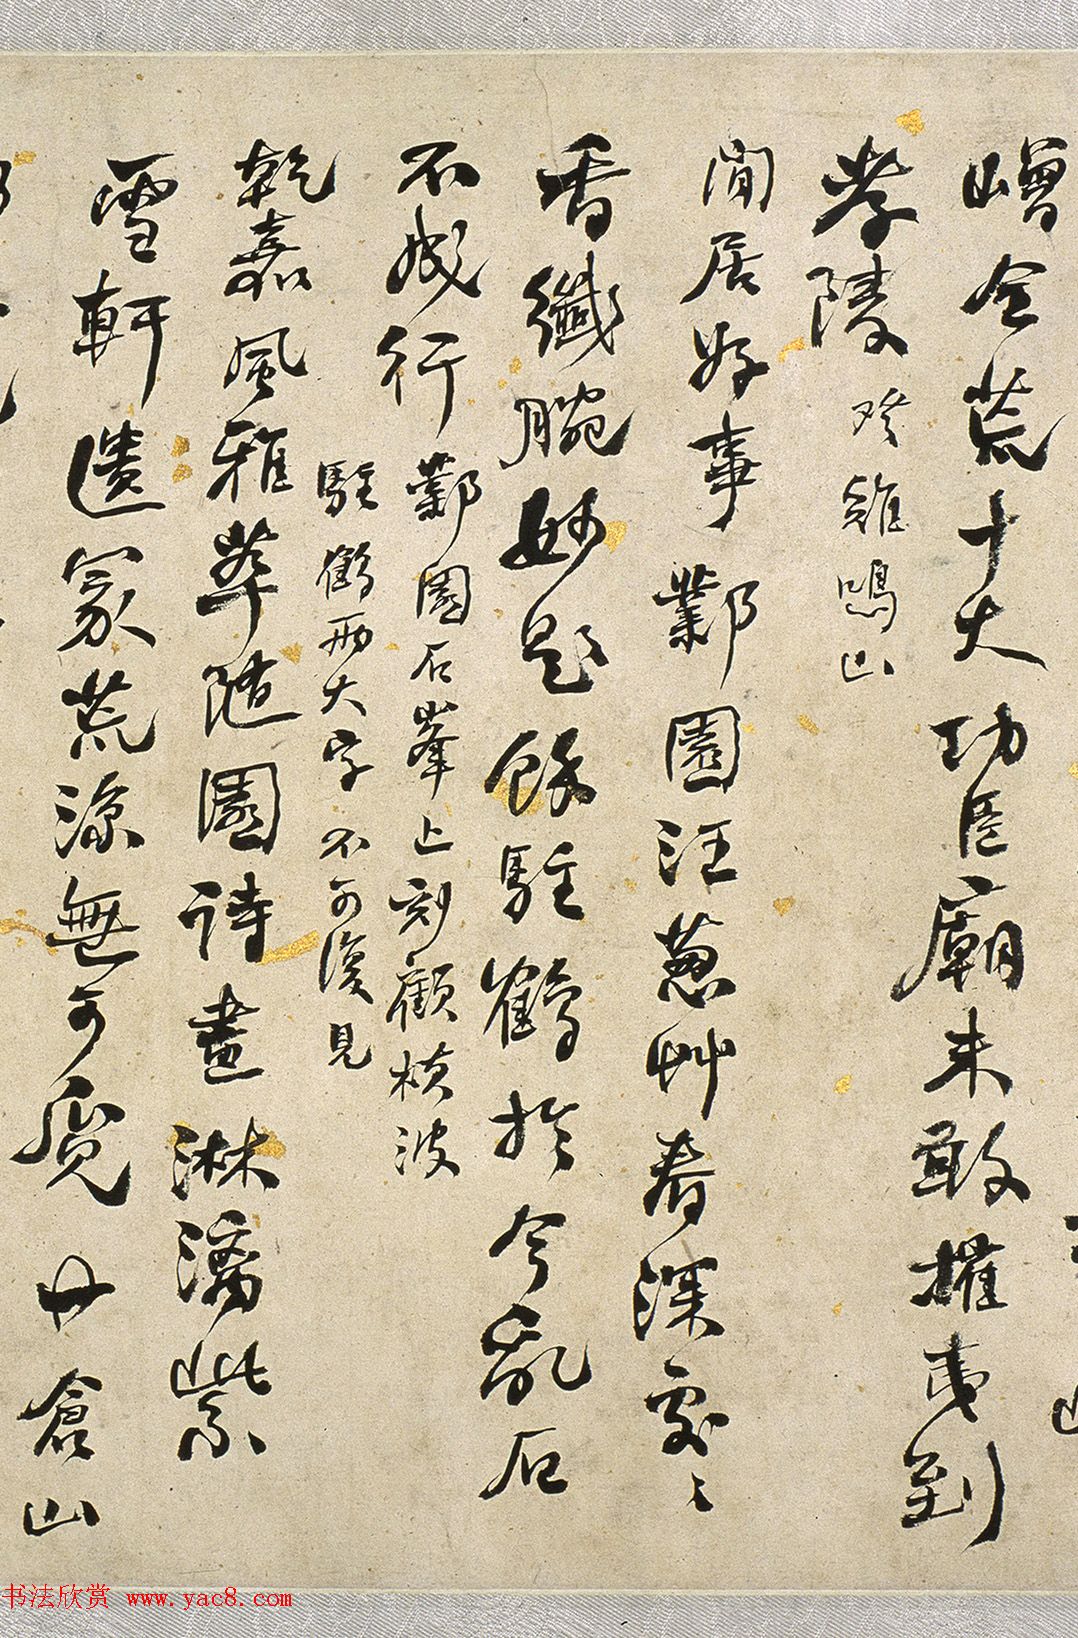 嶒全荒十大功臣廟未敢摧夷到
孝陵 癸雞鳴山
閒居好事鄴園汪蔥艸春深處〻
香纖腕妙題餘駐鶴於今亂石
不成行 鄴園石峯上刻顧橫波
駐鶴兩大字不可復見
乾嘉風雅萃随園詩畫淋漓紫
雪軒遺冢荒涼無可覓 廿倉山
书法欣赏 www.yac8.com